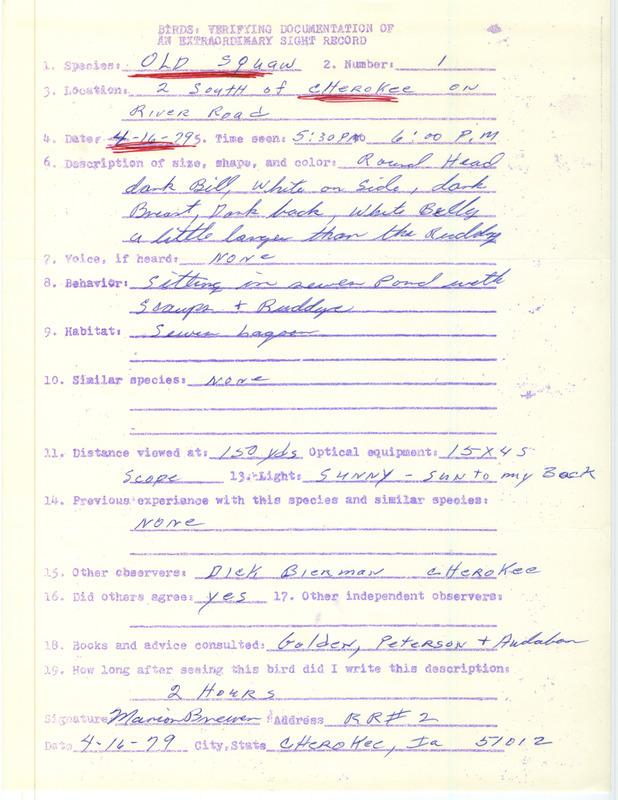 BIRDS: VERIFYING DOCUMENTATION OF
AN EXTRAORDINARY SIGHT RECORD
1. Species: OLD SQUAW 2. Number: 1
3. Location: 2 South of CHEROKEE ON
River Road
4. Date: 4-16-79 5. Time seen: 5:30PM 6:00 P.M
6. Description of size, shape, and color: Round Head
dark Bill, White on Side, dark
Breast, Dark back, White Belly
a little larger than the Ruddy
7. Voice, if heard: NONE
8. Behavior: Sitting in sewer Pond with
Scaups + Ruddys
9. Habitat: Sewer Lagoon
10. Similar species: NONE
11. Distance viewed at: 150 yds Optical equipment: 15X45
Scope 13. Light: SUNNY - SUN to my Back
14. Previous experience with this species and similar species:
NONE
15. Other observers: DICK BIERMAN CHEROKEE
16. Did others agree: yes 17. Other independent observers:
18. Books and advice consulted: Golden, Peterson + Audubon
19. How long after seeing this bird did I write this description:
2 HOURS
Signature Marion Brewer Address RR# 2
Date 4-16-79 City, State CHEROKEE, Ia 51012